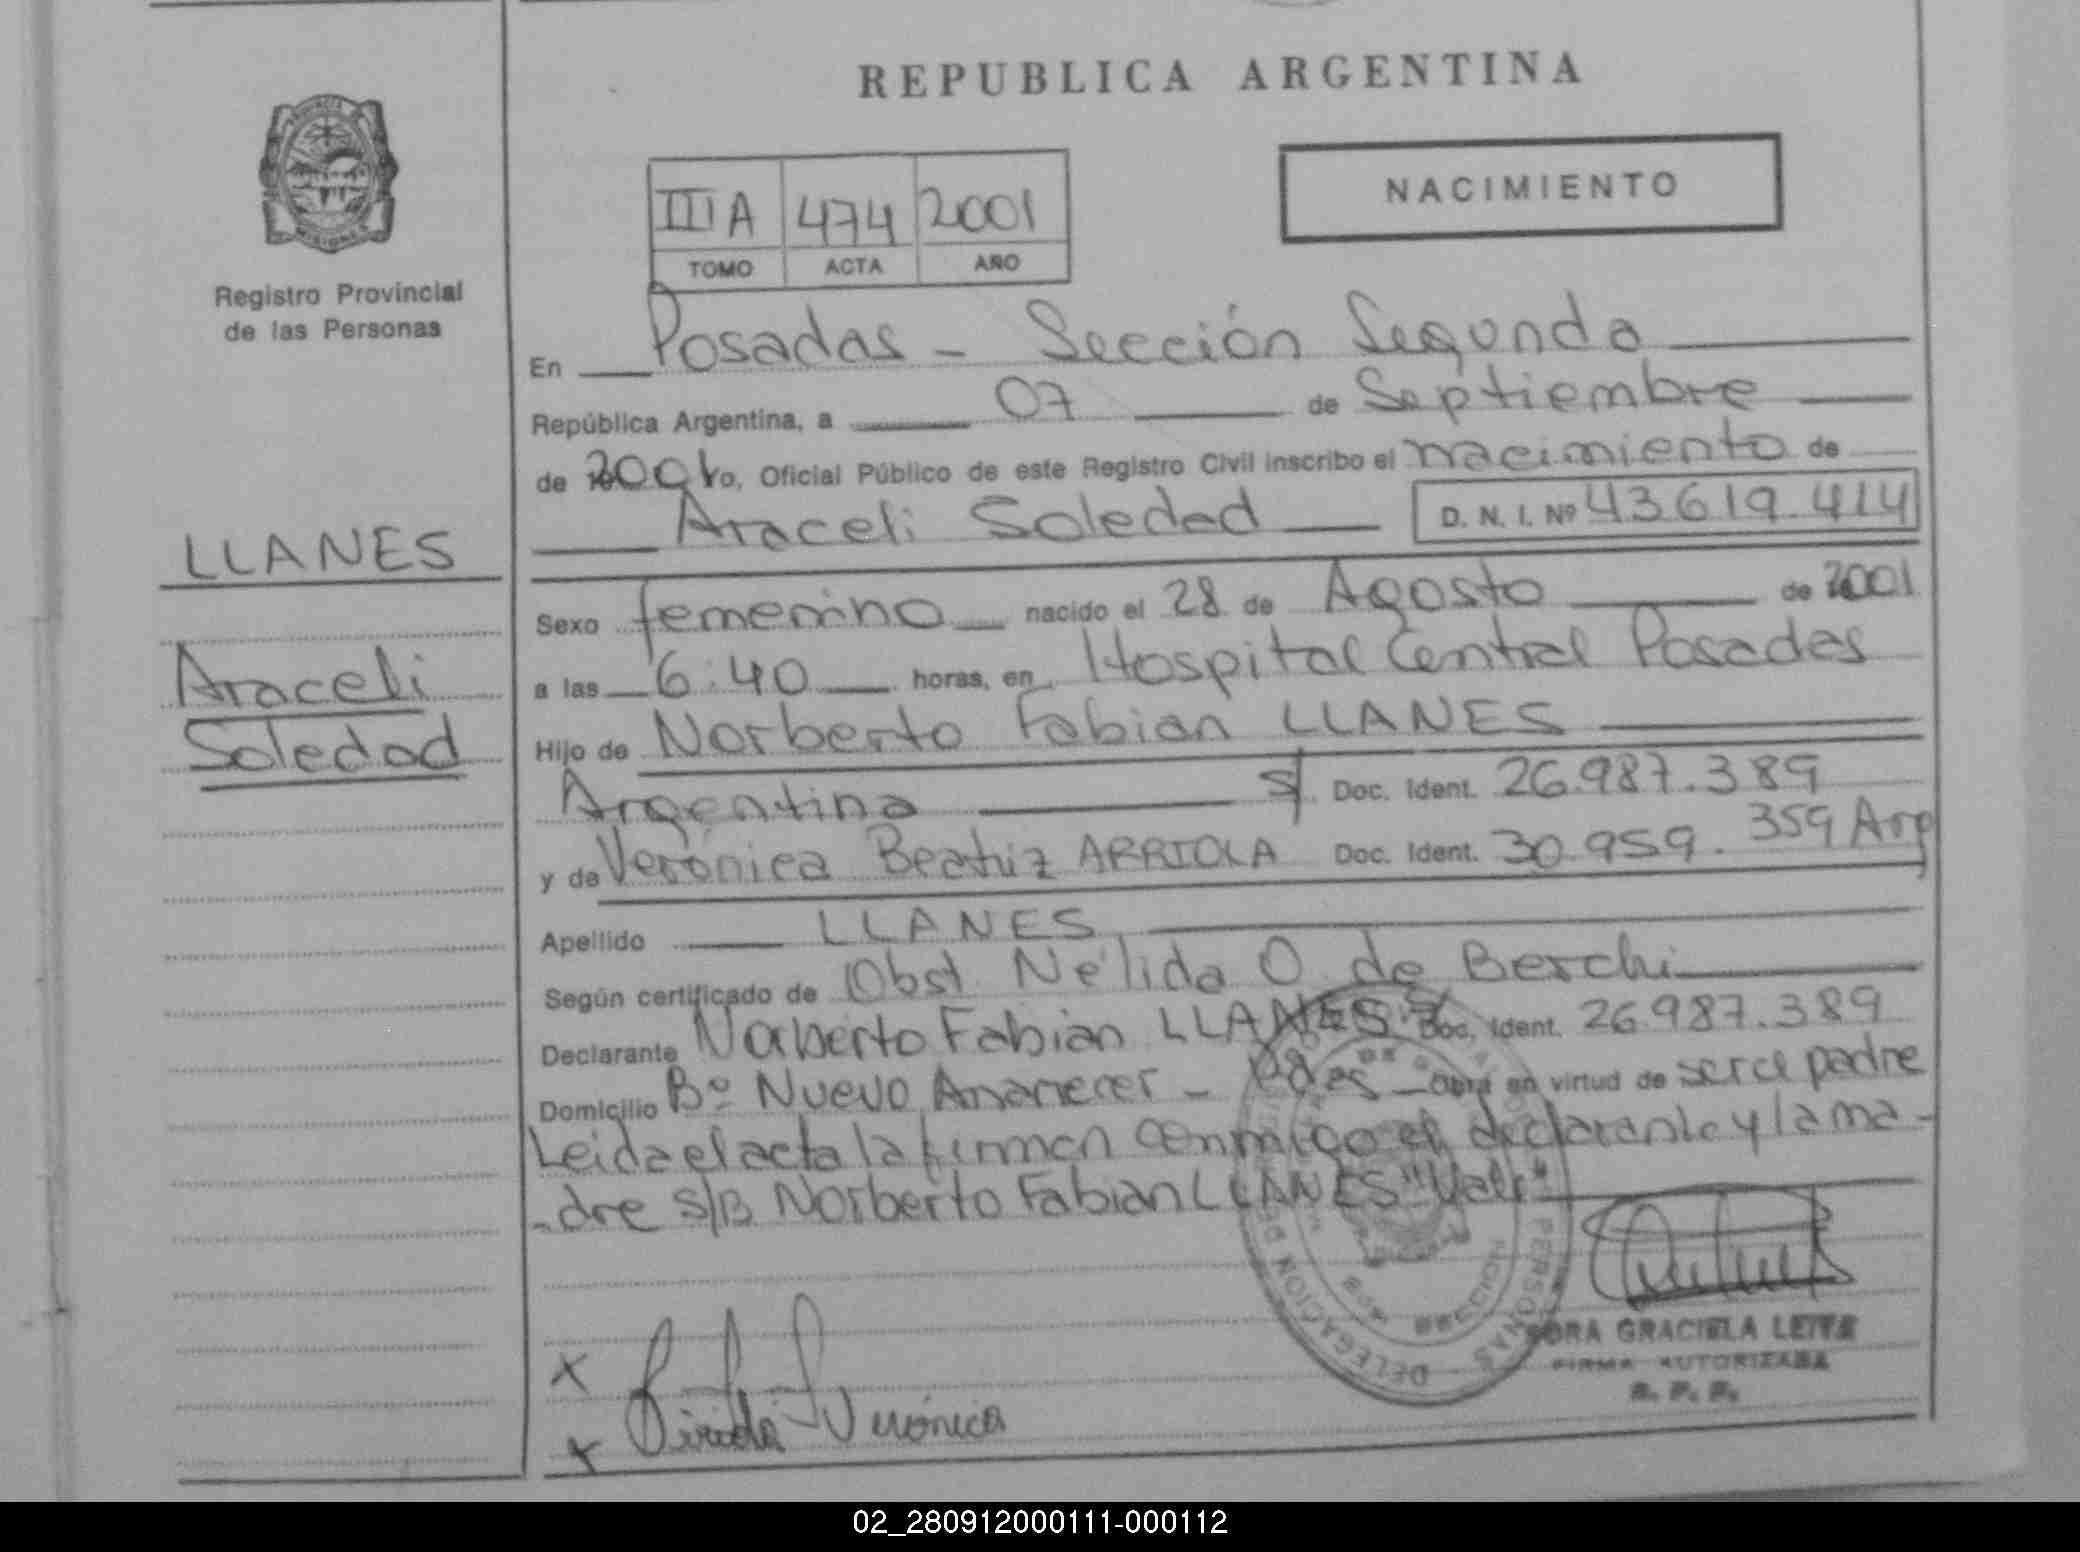 REPUBLICA ARGENTINA
PROVINCIA
MISIONES
Registro Provincial
de las Personas
NACIMIENTO
III A 474 2001
TOMO ACTA AÑO
En Posadas - Sección Segunda
República Argentina, a 07 de Septiembre
de 2001 yo, Oficial Público de este Registro Civil inscribo el nacimiento de
Araceli Soledad D. N. I. Nº 43.619.414
LLANES
Araceli
Soledad
Sexo femenino nacido el 28 de Agosto de 2001
a las 6:40 horas, en Hospital Central Posadas
Hijo de Norberto Fabian LLANES
Argentino s/ Doc. Ident. 26.987.389
y de Verónica Beatriz ARRIOLA Doc. Ident. 30.959.359 Arg
Apellido LLANES
Según certificado de Obst Nélida O. de Berchi
Declarante Norberto Fabian LLANES Doc. Ident. 26.987.389
Domicilio Bº Nuevo Amanecer - Pdas Obra en virtud de ser el padre
Leida el acta la firman conmigo el declarante y la ma-
-dre s/B Norberto Fabian LLANES "Vale"
DELEGACION PERSONAS
X
X Verónica
GRACIELA LEIVA
FIRMA AUTORIZADA
R. P. P.
02_280912000111-000112